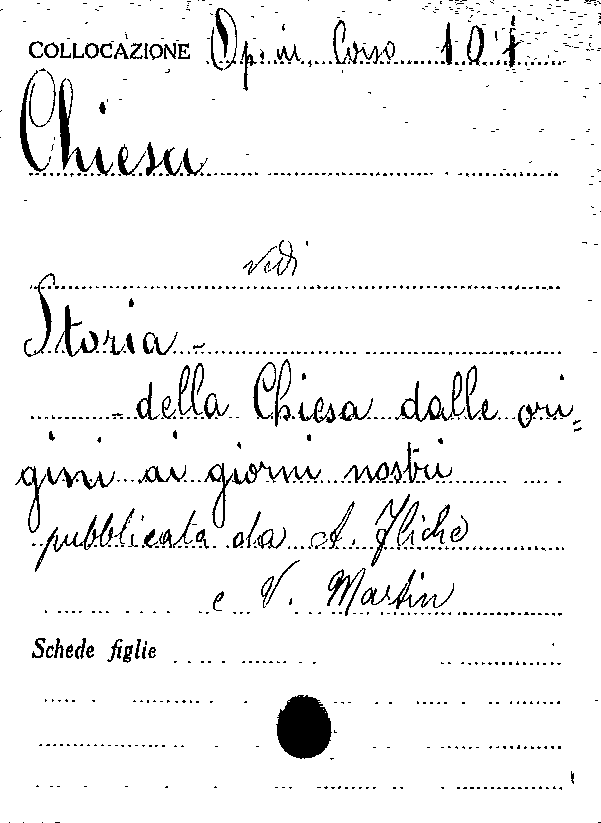 COLLOCAZIONE Op. in Corso 107
Chiesa
vedi
Storia -
- della Chiesa dalle ori=
gini ai giorni nostri
pubblicata da A. Fliche
e V. Martin
Schede figlie